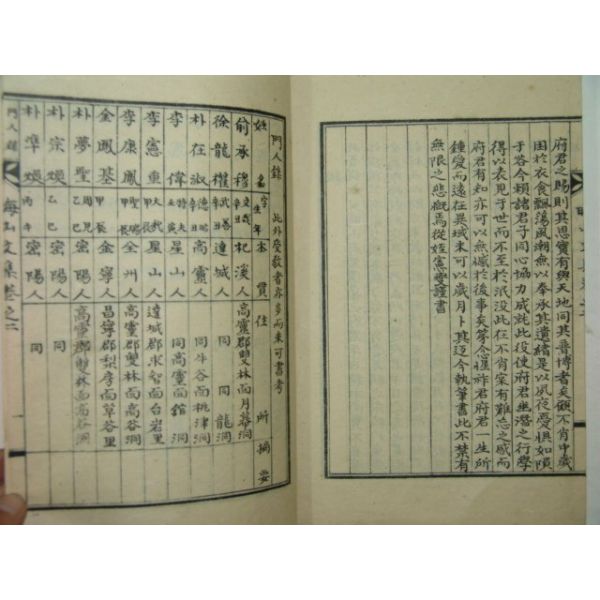 府君之賜則其恩實有與天地同其普博者矣顧不肖中歲
困於衣食飄蕩風潮無以奉承其遺緒是以夙夜憂惧如隕
于谷今賴諸君子同心協力咸玭此役使府君幽潛之行學
得以表見于世而不至於泯沒此在不肖窠有難忘之感而
府君有知亦可以無憾於後事矣篸念惺祚君府君一生所
鍾愛而遠在異域未可以歲月卜其迈今執筆書此不禁有
無限之悲慨焉從姪憲雯謹書
門人錄 此外受敎者亦多而未可盡考
姓名 字生年 本貫 住所 摘要
俞承穆 辛丑 杞溪人 高靈郡雙林面月幕洞
徐龍權 武善 辛丑 達城人 同 同 龍洞
朴在淑 德昭 辛丑 高靈人 同牛谷面桃津洞
李偉 特夫 同高靈面館洞
李憲重 大哉 甲辰 星山人 達城郡求智面台岩里
李康鳳 聖瑞 甲辰 全州人 高靈郡雙林面高谷洞
金鳳基 甲辰 金寧人 昌寧郡梨房面草谷里
朴夢聖 周見 乙巳 密陽人 高靈郡雙林面高谷洞
朴宗煐 乙巳 密陽人 同
朴準煐 丙午 密陽人 同
門人錄 每山文集卷之二